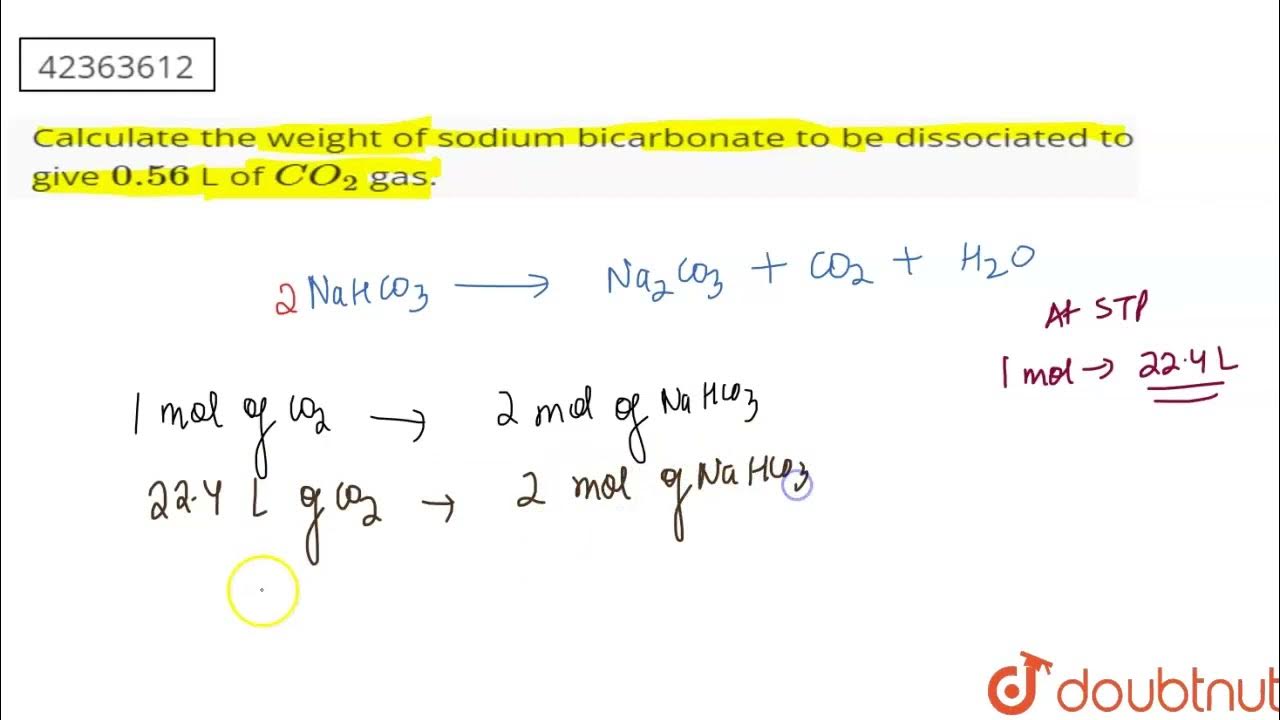 42363612
Calculate the weight of sodium bicarbonate to be dissociated to
give 0.56 L of CO₂ gas.
2 NaHCO₃ ⟶ Na₂CO₃ + CO₂ + H₂O
At STP
1 mol → 22.4 L
1 mol of CO₂ → 2 mol of NaHCO₃
22.4 L of CO₂ → 2 mol of NaHCO₃
doubtnut